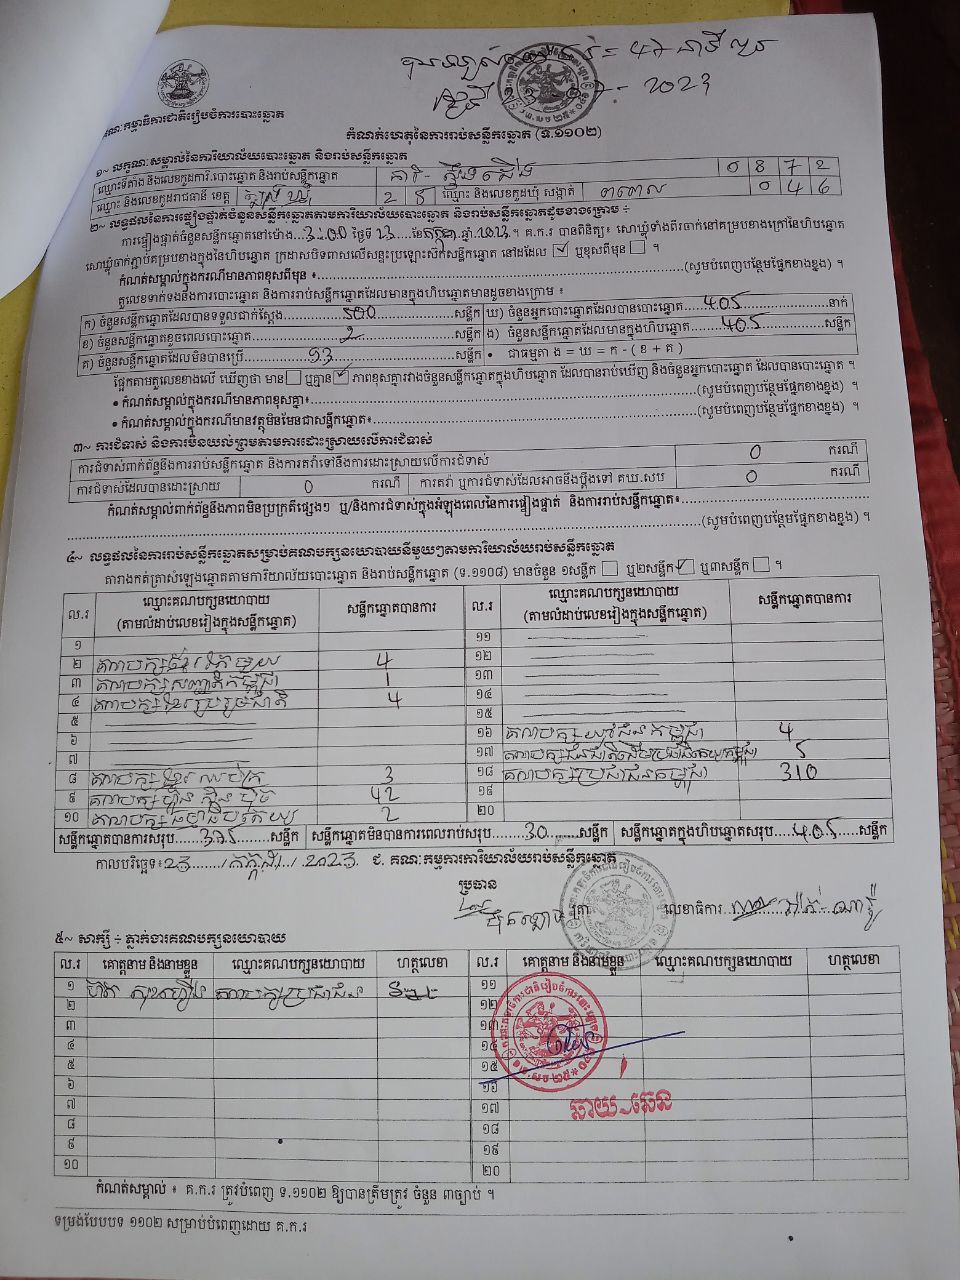 23 - 07 - 2023
គណៈកម្មាធិការជាតិរៀបចំការបោះឆ្នោត
កំណត់ហេតុនៃការរាប់សន្លឹកឆ្នោត (ទ.១១០២)
១~ លក្ខណៈសម្គាល់នៃការិយាល័យបោះឆ្នោត និងរាប់សន្លឹកឆ្នោត
ឈ្មោះទីតាំង និងលេខកូដការិ.បោះឆ្នោត និងរាប់សន្លឹកឆ្នោត 0 8 7 2
ឈ្មោះ និងលេខកូដរាជធានី ខេត្ត 2 5 ឈ្មោះ និងលេខកូដឃុំ សង្កាត់ 0 4 6
២~ លទ្ធផលនៃការផ្ទៀងផ្ទាត់ចំនួនសន្លឹកឆ្នោតតាមការិយាល័យបោះឆ្នោត និងរាប់សន្លឹកឆ្នោតដូចខាងក្រោម ៖
ការផ្ទៀងផ្ទាត់ចំនួនសន្លឹកឆ្នោតនៅម៉ោង 3:00 ថ្ងៃទី 23 ខែកក្កដា ឆ្នាំ 2023 ។ គ.ក.រ បានពិនិត្យ៖ សោឃ្លុំទាំងពីរចាក់នៅគម្របខាងក្រៅនៃហិបឆ្នោត
សោឃ្លុំចាក់ភ្ជាប់គម្របខាងក្នុងនៃហិបឆ្នោត ក្រដាសបិទពាសលើសន្ទះប្រឡោះស៊កសន្លឹកឆ្នោត នៅដដែល ✓ ឬខុសពីមុន ។
កំណត់សម្គាល់ក្នុងករណីមានភាពខុសពីមុន ៖ (សូមបំពេញបន្ថែមផ្នែកខាងខ្នង) ។
តួលេខទាក់ទងនឹងការបោះឆ្នោត និងការរាប់សន្លឹកឆ្នោតដែលមានក្នុងហិបឆ្នោតមានដូចខាងក្រោម ៖
ក) ចំនួនសន្លឹកឆ្នោតដែលបានទទួលជាក់ស្តែង 500 សន្លឹក ឃ) ចំនួនអ្នកបោះឆ្នោតដែលបានបោះឆ្នោត 405 នាក់
ខ) ចំនួនសន្លឹកឆ្នោតខូចពេលបោះឆ្នោត 2 សន្លឹក ង) ចំនួនសន្លឹកឆ្នោតដែលមានក្នុងហិបឆ្នោត 405 សន្លឹក
គ) ចំនួនសន្លឹកឆ្នោតដែលមិនបានប្រើ 93 សន្លឹក • ជាធម្មតា ង = ឃ = ក - ( ខ + គ )
ផ្អែកតាមតួលេខខាងលើ ឃើញថា មាន ឬគ្មាន ✓ ភាពខុសគ្នារវាងចំនួនសន្លឹកឆ្នោតក្នុងហិបឆ្នោត ដែលបានរាប់ឃើញ និងចំនួនអ្នកបោះឆ្នោត ដែលបានបោះឆ្នោត ។
• កំណត់សម្គាល់ក្នុងករណីមានភាពខុសគ្នា៖ (សូមបំពេញបន្ថែមផ្នែកខាងខ្នង) ។
• កំណត់សម្គាល់ក្នុងករណីមានវត្ថុមិនមែនជាសន្លឹកឆ្នោត៖ (សូមបំពេញបន្ថែមផ្នែកខាងខ្នង) ។
៣~ ការជំទាស់ និងការមិនយល់ព្រមតាមការដោះស្រាយលើការជំទាស់
ការជំទាស់ពាក់ព័ន្ធនឹងការរាប់សន្លឹកឆ្នោត និងការតវ៉ាទៅនឹងការដោះស្រាយលើការជំទាស់ 0 ករណី
ការជំទាស់ដែលបានដោះស្រាយ 0 ករណី ការតវ៉ា ឬការជំទាស់ដែលអាចនឹងប្តឹងទៅ គឃ.សប 0 ករណី
កំណត់សម្គាល់ពាក់ព័ន្ធនឹងភាពមិនប្រក្រតីផ្សេងៗ ឬ/និងការជំទាស់ក្នុងអំឡុងពេលនៃការផ្ទៀងផ្ទាត់ និងការរាប់សន្លឹកឆ្នោត៖
(សូមបំពេញបន្ថែមផ្នែកខាងខ្នង) ។
៤~ លទ្ធផលនៃការរាប់សន្លឹកឆ្នោតសម្រាប់គណបក្សនយោបាយនីមួយៗតាមការិយាល័យរាប់សន្លឹកឆ្នោត
តារាងកត់ត្រាសំឡេងឆ្នោតតាមការិយាល័យបោះឆ្នោត និងរាប់សន្លឹកឆ្នោត (ទ.១១០៨) មានចំនួន ១សន្លឹក ឬ២សន្លឹក ✓ ឬ៣សន្លឹក ។
ល.រ ឈ្មោះគណបក្សនយោបាយ (តាមលំដាប់លេខរៀងក្នុងសន្លឹកឆ្នោត) សន្លឹកឆ្នោតបានការ ល.រ ឈ្មោះគណបក្សនយោបាយ (តាមលំដាប់លេខរៀងក្នុងសន្លឹកឆ្នោត) សន្លឹកឆ្នោតបានការ
១ ១១
២ គណបក្សខ្មែរតែមួយ 4 ១២
៣ គណបក្សសញ្ជាតិកម្ពុជា 1 ១៣
៤ គណបក្សខ្មែររួបរួមជាតិ 4 ១៤
៥ ១៥
៦ ១៦ គណបក្សយុវជនកម្ពុជា 4
៧ ១៧ 5
៨ 3 ១៨ គណបក្សប្រជាជនកម្ពុជា 310
៩ គណបក្សហ្វ៊ុនស៊ិនប៉ិច 42 ១៩
១០ គណបក្សធម្មាធិបតេយ្យ 2 ២០
សន្លឹកឆ្នោតបានការសរុប 375 សន្លឹក សន្លឹកឆ្នោតមិនបានការពេលរាប់សរុប 30 សន្លឹក សន្លឹកឆ្នោតក្នុងហិបឆ្នោតសរុប 405 សន្លឹក
កាលបរិច្ឆេទ៖ 23 / កក្កដា / 2023 ជ. គណៈកម្មការការិយាល័យរាប់សន្លឹកឆ្នោត
ប្រធាន
លេខាធិការ
៥~ សាក្សី ÷ ភ្នាក់ងារគណបក្សនយោបាយ
ល.រ គោត្តនាម និងនាមខ្លួន ឈ្មោះគណបក្សនយោបាយ ហត្ថលេខា ល.រ គោត្តនាម និងនាមខ្លួន ឈ្មោះគណបក្សនយោបាយ ហត្ថលេខា
១ គណបក្សប្រជាជន ១១
២ ១២
៣ ១៣
៤ ១៤
៥ ១៥
៦ ១៦
៧ ១៧
៨ ១៨
៩ ១៩
១០ ២០
ឆាយ សេន
កំណត់សម្គាល់ ៖ គ.ក.រ ត្រូវបំពេញ ទ.១១០២ ឱ្យបានត្រឹមត្រូវ ចំនួន ៣ច្បាប់ ។
ទម្រង់បែបបទ ១១០២ សម្រាប់បំពេញដោយ គ.ក.រ